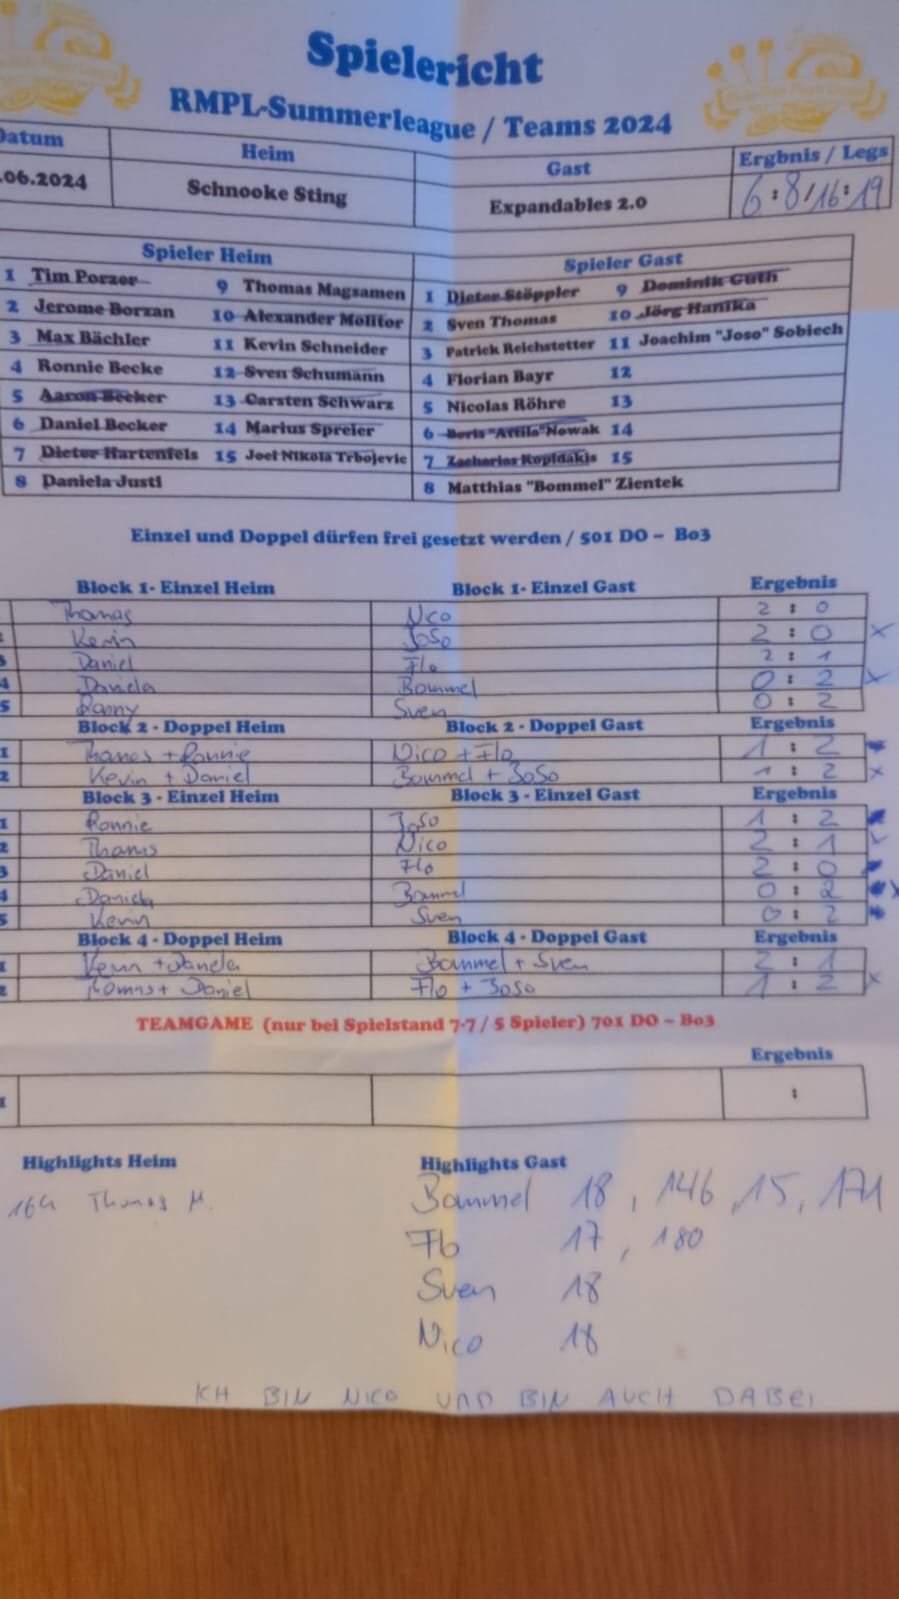 Spielericht
RMPL-Summerleague / Teams 2024
Datum Heim Gast Ergbnis / Legs
.06.2024 Schnooke Sting Expandables 2.0 6:8/16:19
Spieler Heim Spieler Gast
1 Tim Porzer 9 Thomas Magsamen 1 Dieter Stöppler 9 Dominik Guth
2 Jerome Borzan 10 Alexander Molitor 2 Sven Thomas 10 Jörg Hanika
3 Max Bächler 11 Kevin Schneider 3 Patrick Reichstetter 11 Joachim "Joso" Sobiech
4 Ronnie Becke 12 Sven Schumann 4 Florian Bayr 12
5 Aaron Becker 13 Carsten Schwarz 5 Nicolas Röhre 13
6 Daniel Becker 14 Marius Spreier 6 Boris "Attila" Nowak 14
7 Dieter Hartenfels 15 Joel Nikola Trbojevic 7 Zacharias Kopidakis 15
8 Daniela Justi 8 Matthias "Bommel" Zientek
Einzel und Doppel dürfen frei gesetzt werden / 501 DO - Bo3
Block 1- Einzel Heim Block 1- Einzel Gast Ergebnis
Thomas Nico 2 : 0
Kevin Joso 2 : 0 x
Daniel Flo 2 : 1
4 Daniela Bommel 0 : 2 x
5 Ronny Sven 0 : 2
Block 2 - Doppel Heim Block 2 - Doppel Gast Ergebnis
1 Thomas + Ronnie Nico + Flo 1 : 2
2 Kevin + Daniel Bommel + Joso 1 : 2 x
Block 3 - Einzel Heim Block 3 - Einzel Gast Ergebnis
1 Ronnie Joso 1 : 2
2 Thomas Nico 2 : 1
3 Daniel Flo 2 : 0
4 Daniela Bommel 0 : 2 x
5 Kevin Sven 0 : 2
Block 4 - Doppel Heim Block 4 - Doppel Gast Ergebnis
1 Kevin + Daniela Bommel + Sven 2 : 1
2 Thomas + Daniel Flo + Joso 1 : 2 x
TEAMGAME (nur bei Spielstand 7-7 / 5 Spieler) 701 DO - Bo3
Ergebnis
1 :
Highlights Heim Highlights Gast
164 Thomas M. Bommel 18, 146, 15, 171
Flo 17, 180
Sven 18
Nico 18
ICH BIN NICO UND BIN AUCH DABEI